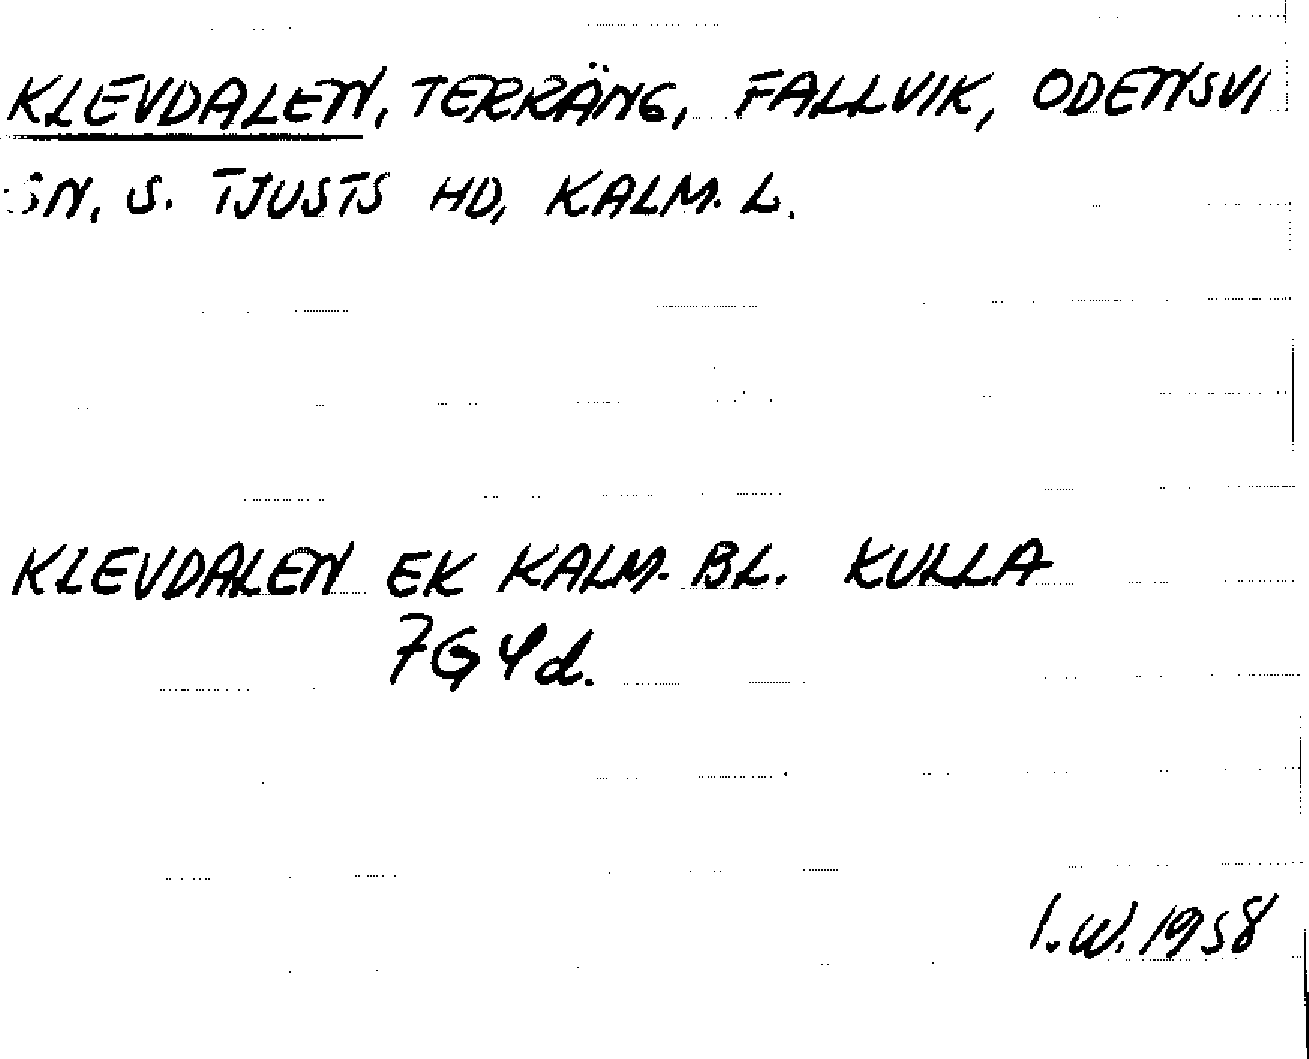 KLEVDALEN, TERRÄNG, FALLVIK, ODENSVI
SN, S. TJUSTS HD, KALM. L.
KLEVDALEN EK KALM. BL. KULLA
7G4d.
I.W. 1958